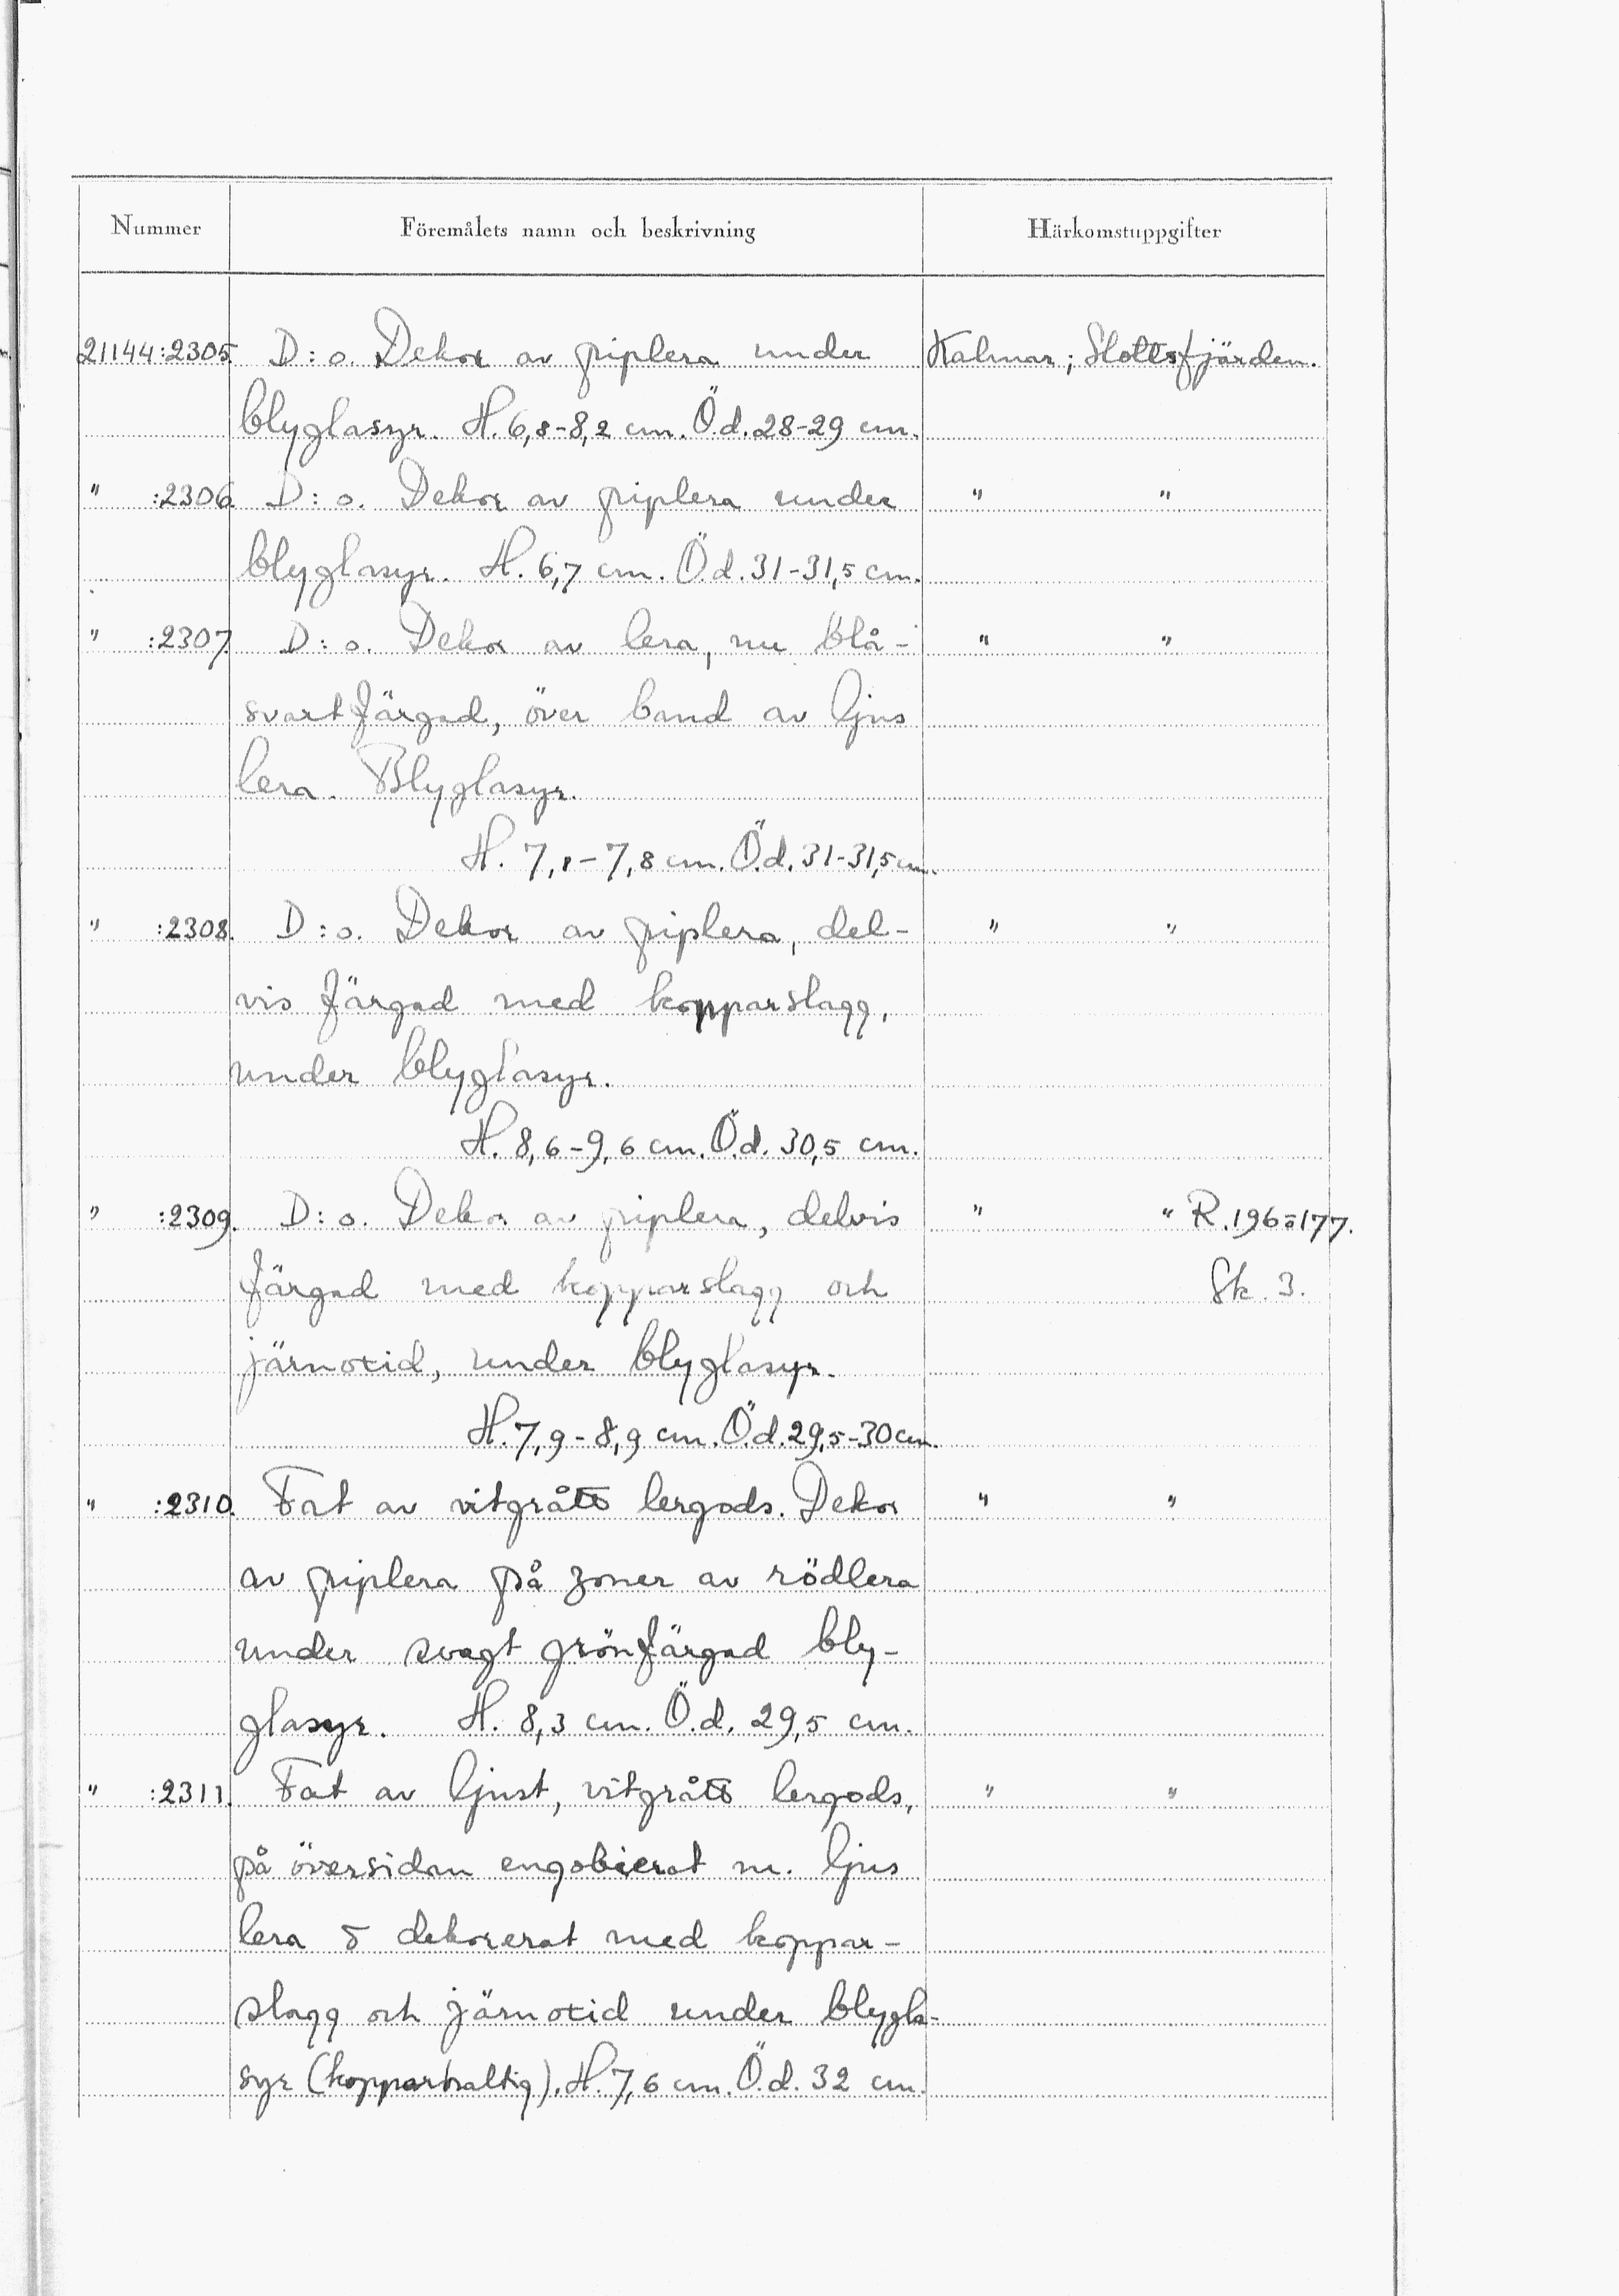 Nummer Föremålets namn och beskrivning Härkomstuppgifter
21144:2305. D:o. Dekor av piplera under Kalmar; Slottsfjärden.
blyglasyr. H. 6,8-8,2 cm. Ö.d. 28-29 cm.
" :2306. D:o. Dekor av piplera under " "
blyglasyr. H. 6,7 cm. Ö.d. 31-31,5 cm.
" :2307. D:o. Dekor av lera, nu blå- " "
svartfärgad, över band av ljus
lera. Blyglasyr.
H. 7,1-7,8 cm. Ö.d. 31-31,5 cm.
" :2308. D:o. Dekor av piplera, del- " "
vis färgad med kopparslagg,
under blyglasyr.
H. 8,6-9,6 cm. Ö.d. 30,5 cm.
" :2309. D:o. Dekor av piplera, delvis " " R. 196 177.
färgad med kopparslagg och Sk. 3.
järnoxid, under blyglasyr.
H. 7,9-8,9 cm. Ö.d. 29,5-30 cm.
" :2310. Fat av vitgrått lergods. Dekor " "
av piplera på zoner av rödlera
under svagt grönfärgad bly-
glasyr. H. 8,3 cm. Ö.d. 29,5 cm.
" :2311. Fat av ljust, vitgrått lergods, " "
på översidan engobierat m. ljus
lera & dekorerat med koppar-
slagg och järnoxid under blygla-
syr (kopparhaltig). H. 7,6 cm. Ö.d. 32 cm.